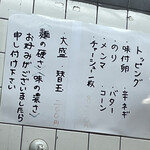 トッピング
味付卵・辛ネギ
・のり・バター
・メンマ・コーン
・チャーシュー一枚
大盛・替玉
〈麺の硬さ〉〈味の濃さ〉
お好みがございましたら
申し付け下さい